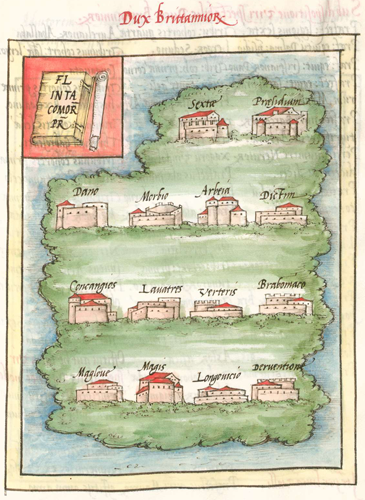 Dux Brittannioȝ
FL
INTA
COMOR
PR
Sextæ Præsidium
Dano Morbio Arbeia Dictim
Concangios Lauatres Verteris Braboniaco
Magloue Magis Longouicio Deruentione